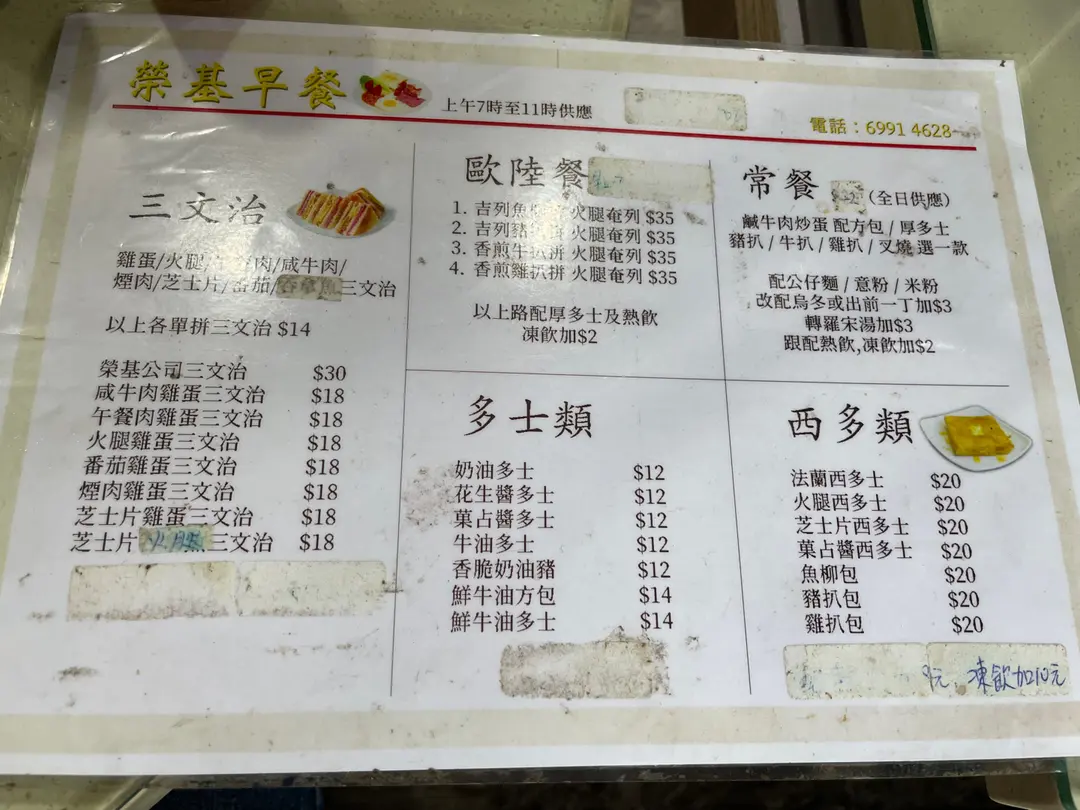 榮基早餐
上午7時至11時供應
電話：6991 4628
三文治
雞蛋/火腿/ 肉/咸牛肉/
煙肉/芝士片/番茄/ 三文治
以上各單拼三文治 $14
榮基公司三文治 $30
咸牛肉雞蛋三文治 $18
午餐肉雞蛋三文治 $18
火腿雞蛋三文治 $18
番茄雞蛋三文治 $18
煙肉雞蛋三文治 $18
芝士片雞蛋三文治 $18
芝士片火腿三文治 $18
歐陸餐
1. 吉列魚 火腿奄列 $35
2. 吉列豬 火腿奄列 $35
3. 香煎牛扒拼 火腿奄列 $35
4. 香煎雞扒拼 火腿奄列 $35
以上路配厚多士及熱飲
凍飲加$2
常餐
(全日供應)
鹹牛肉炒蛋 配方包 / 厚多士
豬扒 / 牛扒 / 雞扒 / 叉燒 選一款
配公仔麵 / 意粉 / 米粉
改配烏冬或出前一丁加$3
轉羅宋湯加$3
跟配熱飲,凍飲加$2
多士類
奶油多士 $12
花生醬多士 $12
菓占醬多士 $12
牛油多士 $12
香脆奶油豬 $12
鮮牛油方包 $14
鮮牛油多士 $14
西多類
法蘭西多士 $20
火腿西多士 $20
芝士片西多士 $20
菓占醬西多士 $20
魚柳包 $20
豬扒包 $20
雞扒包 $20
9元、凍飲加10元